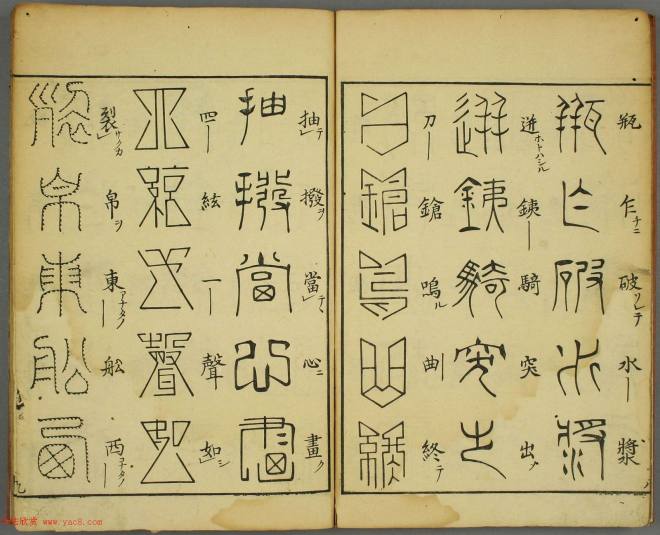 瓶 乍チニ 破レテ 水ー 漿
瓶 乍 破 水 漿
迸ホトハシル 銕ー 騎 突 出
迸 銕 騎 突 出
刀ー 鎗 鳴ル 曲 終テ
刀 鎗 鳴 曲 終
抽テ 撥ヲ 當テ 心ニ 畫ク
抽 撥 當 心 畫
四ー 絃 一ー 聲 如シ
四 絃 一 聲 如
裂サクカ 帛ヲ 東ー 舩 西
裂 帛 東 舩 西
www.yac8.com